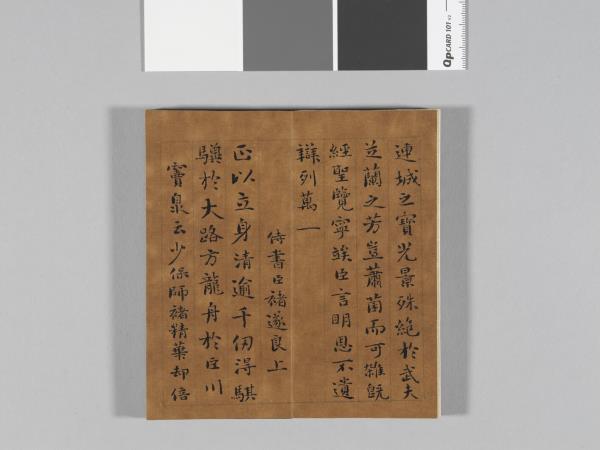 連城之寶光景殊絕於武夫
芝蘭之芳豈蕭茵而可雜旣
經聖覽寧竢臣言明恩不遺
辯列萬一
侍書臣褚遂良上
正以立身清逾千仞得騏
驥於大路方龍舟於巨川
竇臮云少保師褚精華却倍
OpCARD 101 v2